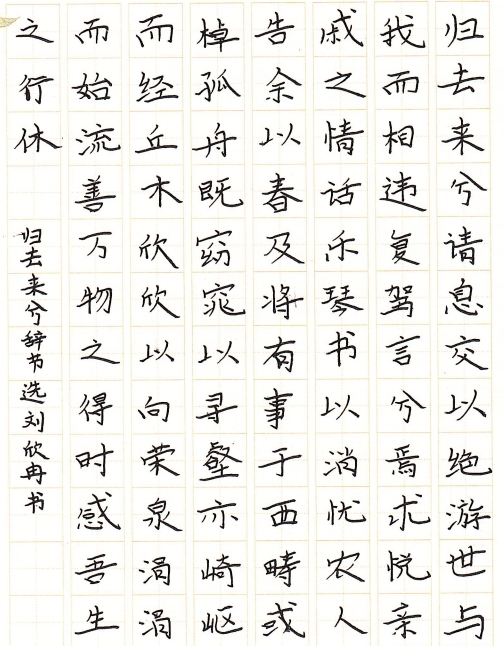 归去来兮请息交以绝游世与
我而相违复驾言兮焉求悦亲
戚之情话乐琴书以消忧农人
告余以春及将有事于西畴或
棹孤舟既窈窕以寻壑亦崎岖
而经丘木欣欣以向荣泉涓涓
而始流善万物之得时感吾生
之行休
归去来兮辞节选刘欣冉书